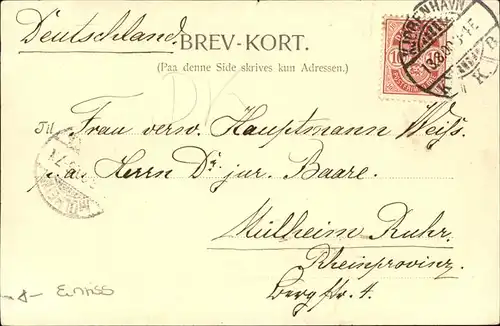 Deutschland.
BREV-KORT.
(Paa denne Side skrives kun Adressen.)
KJØBENHAVN
K.
DK
Til Frau verw. Hauptmann Weiss.
p. a. Herrn Dr. jur. Baare.
Mülheim Ruhr.
Rheinprovinz.
Bergstr. 4.